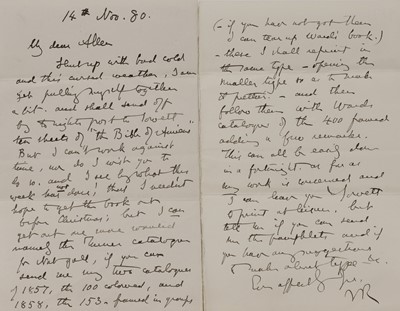 14th Nov. 80.
My dear Allen
Shut up with bad cold
and this cursed weather, I am
yet pulling myself together
a bit. and shall send off
by to nights post to Jowett
ten sheets of "the Bible of Amiens
But I can't work against
time, nor do I wish you to
do so. and I see by what this
week has done, that I needn't
hope to get the book out
before Christmas; but I can
get out one more wanted
namely the Turner catalogue
for Nat gall, if you can
send me my two catalogues
of 1857, the 100 coloured, and
1858, the 153 - framed in groups
(- if you have not got them
I can tear up Ward's book.)
- these I shall reprint in
the same type - opening the
smaller type so as to make
it prettier - and then
follow them with Wards
catalogue of the 400 framed
adding a few remarks.
This can all be easily done
in a fortnight as far as
my work is concerned and
I can leave you Jowett
to print at leisure. but
tell me if you can send
me the pamphlets and if
you have any suggestions
to make about type &c.
Ever affectly Yrs.
JR